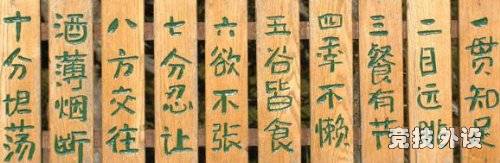 一贯知足
二目远眺
三餐有节
四季不懒
五谷皆食
六欲不张
七分忍让
八方交往
酒薄烟断
十分坦荡
竞技外设